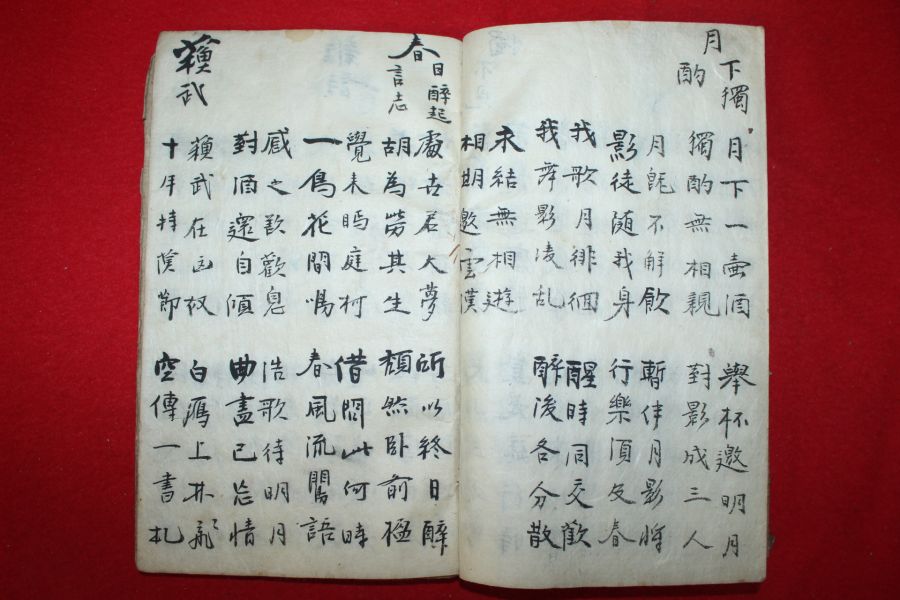 月下獨酌
月下一壺酒 舉杯邀明月
獨酌無相親 對影成三人
月旣不解飮 暫伴月影將
影徒随我身 行樂須及春
我歌月徘徊 醒時同交歡
我舞影凌乱 醉後各分散
未結無相遊
相期邀雲漢
春日醉起言志
處世若大夢 所以終日醉
胡為勞其生 頹然卧前楹
覺来眄庭柯 借問此何時
一鳥花間鳴 春風流鶯語
感之欲歡息 浩歌待明月
對酒還自傾 曲盡已忘情
蘇武
蘇武在匈奴 白鴈上林飛
十年持漢節 空傳一書札